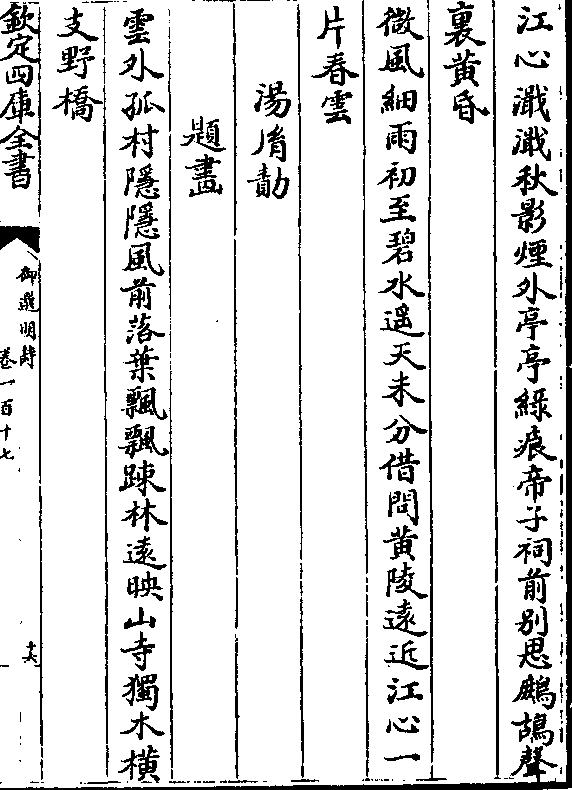 江心濈濈秋影煙外亭亭綠痕帝子祠前别思鷓鴣聲
裏黄昏
微風細雨初至碧水遥天未分借問黄陵遠近江心一
片春雲
湯胤勣
題畫
雲外孤村隱隱風前落葉飄飄踈林遠映山寺獨木横
支野橋
欽定四庫全書
御選明詩
卷一百十七
十六